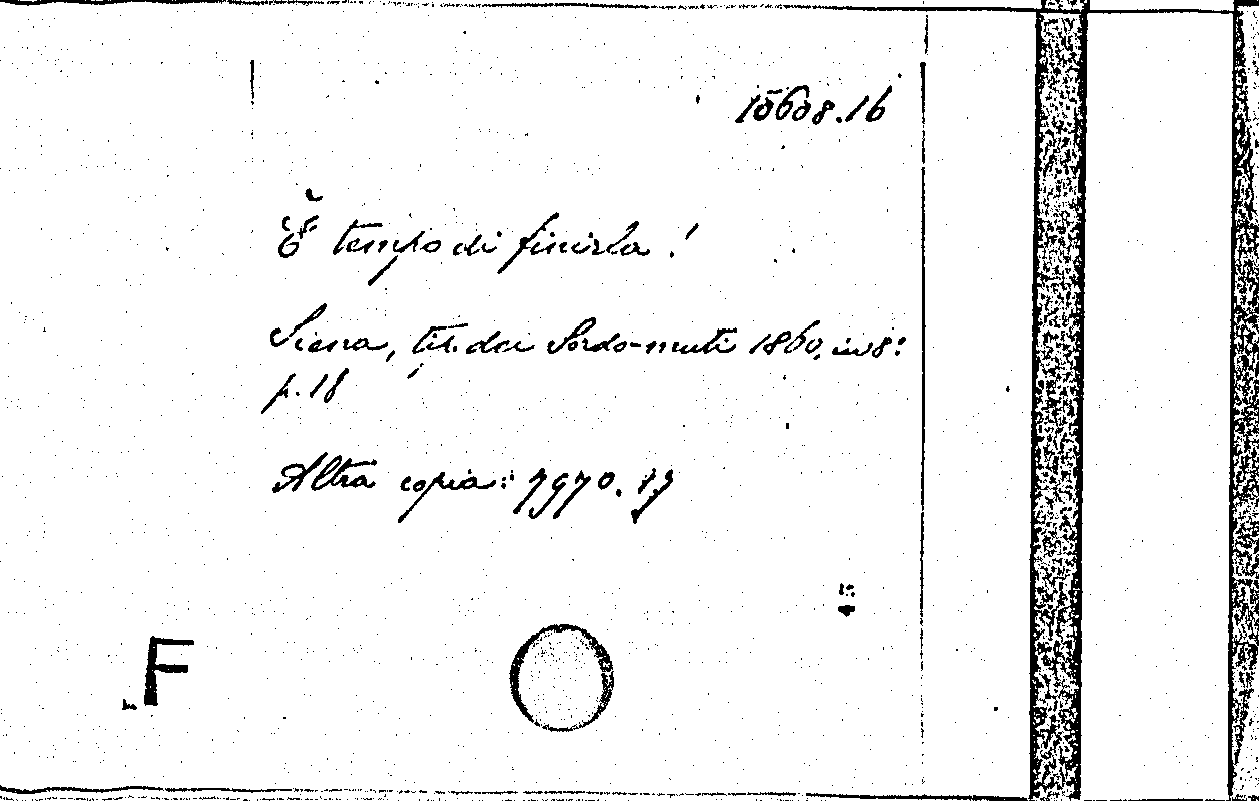 15608.16
È tempo di finirla!
Siena, tip. dei Sordo-muti 1860, in 8°
p. 18
Altra copia: 7970.17
F